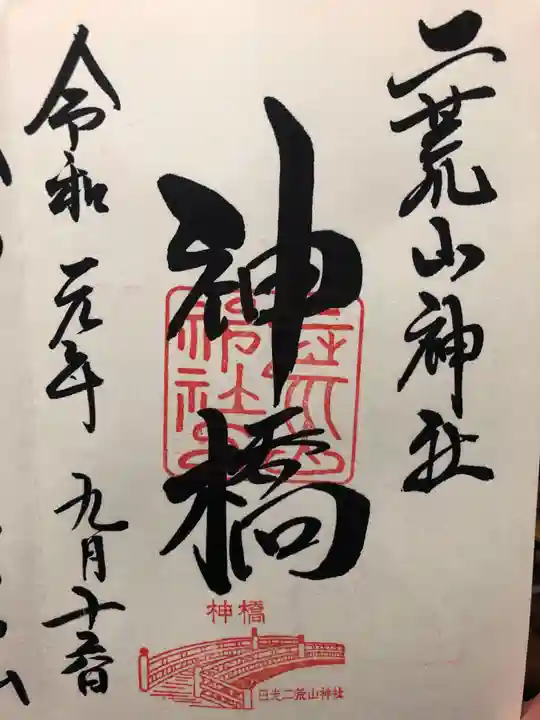 二荒山神社
神橋
令和元年九月十五日
神橋
日光二荒山神社